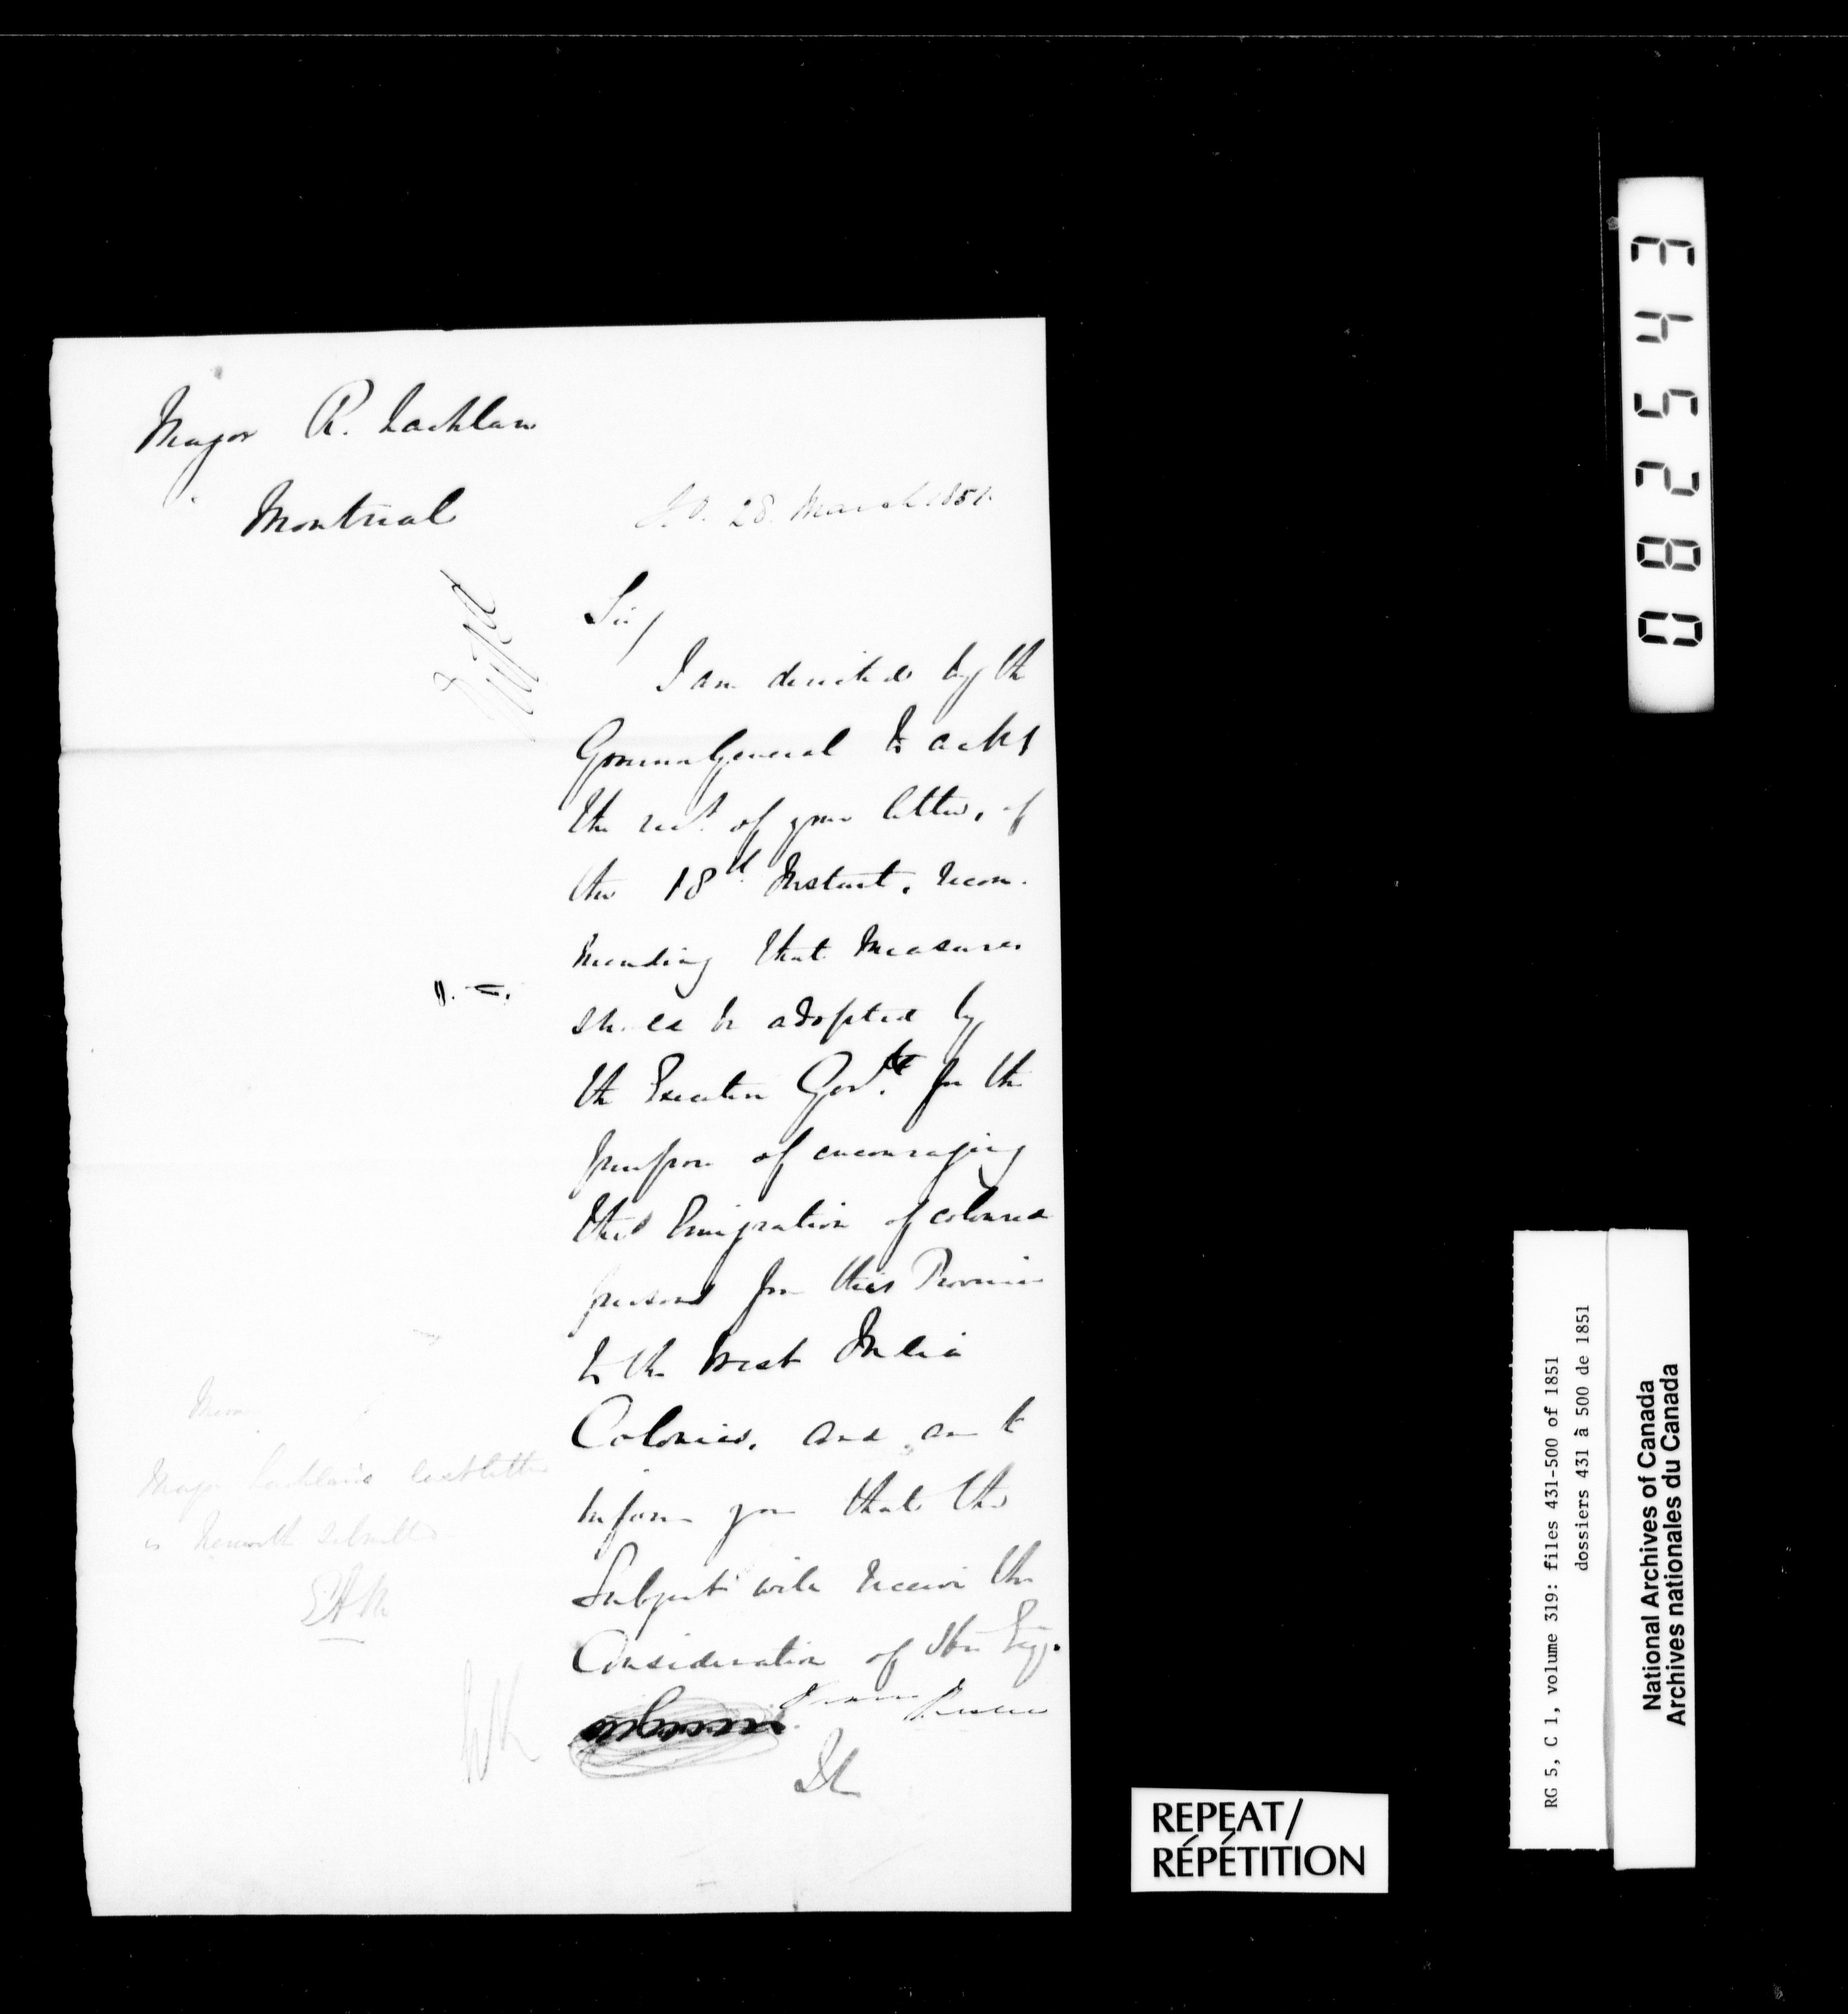 Major R. Lachlan
Montreal
28. March 1851.
Sir/
I am directed by the
Governor General to ackn
the rect. of your letter, of
the 18th Instant, recom-
mending that measures
should be adopted by
the Executive Govt. for the
purpose of encouraging
the Emigration of coloured
persons from this Province
to the West India
Colonies, and am to
inform you that the
Subject will receive the
Consideration of His Exy.
in Council
Major Lachlan's last letter
is herewith submitted
082543
REPEAT/
RÉPÉTITION
RG 5, C 1, volume 319: files 431-500 of 1851
dossiers 431 à 500 de 1851
National Archives of Canada
Archives nationales du Canada